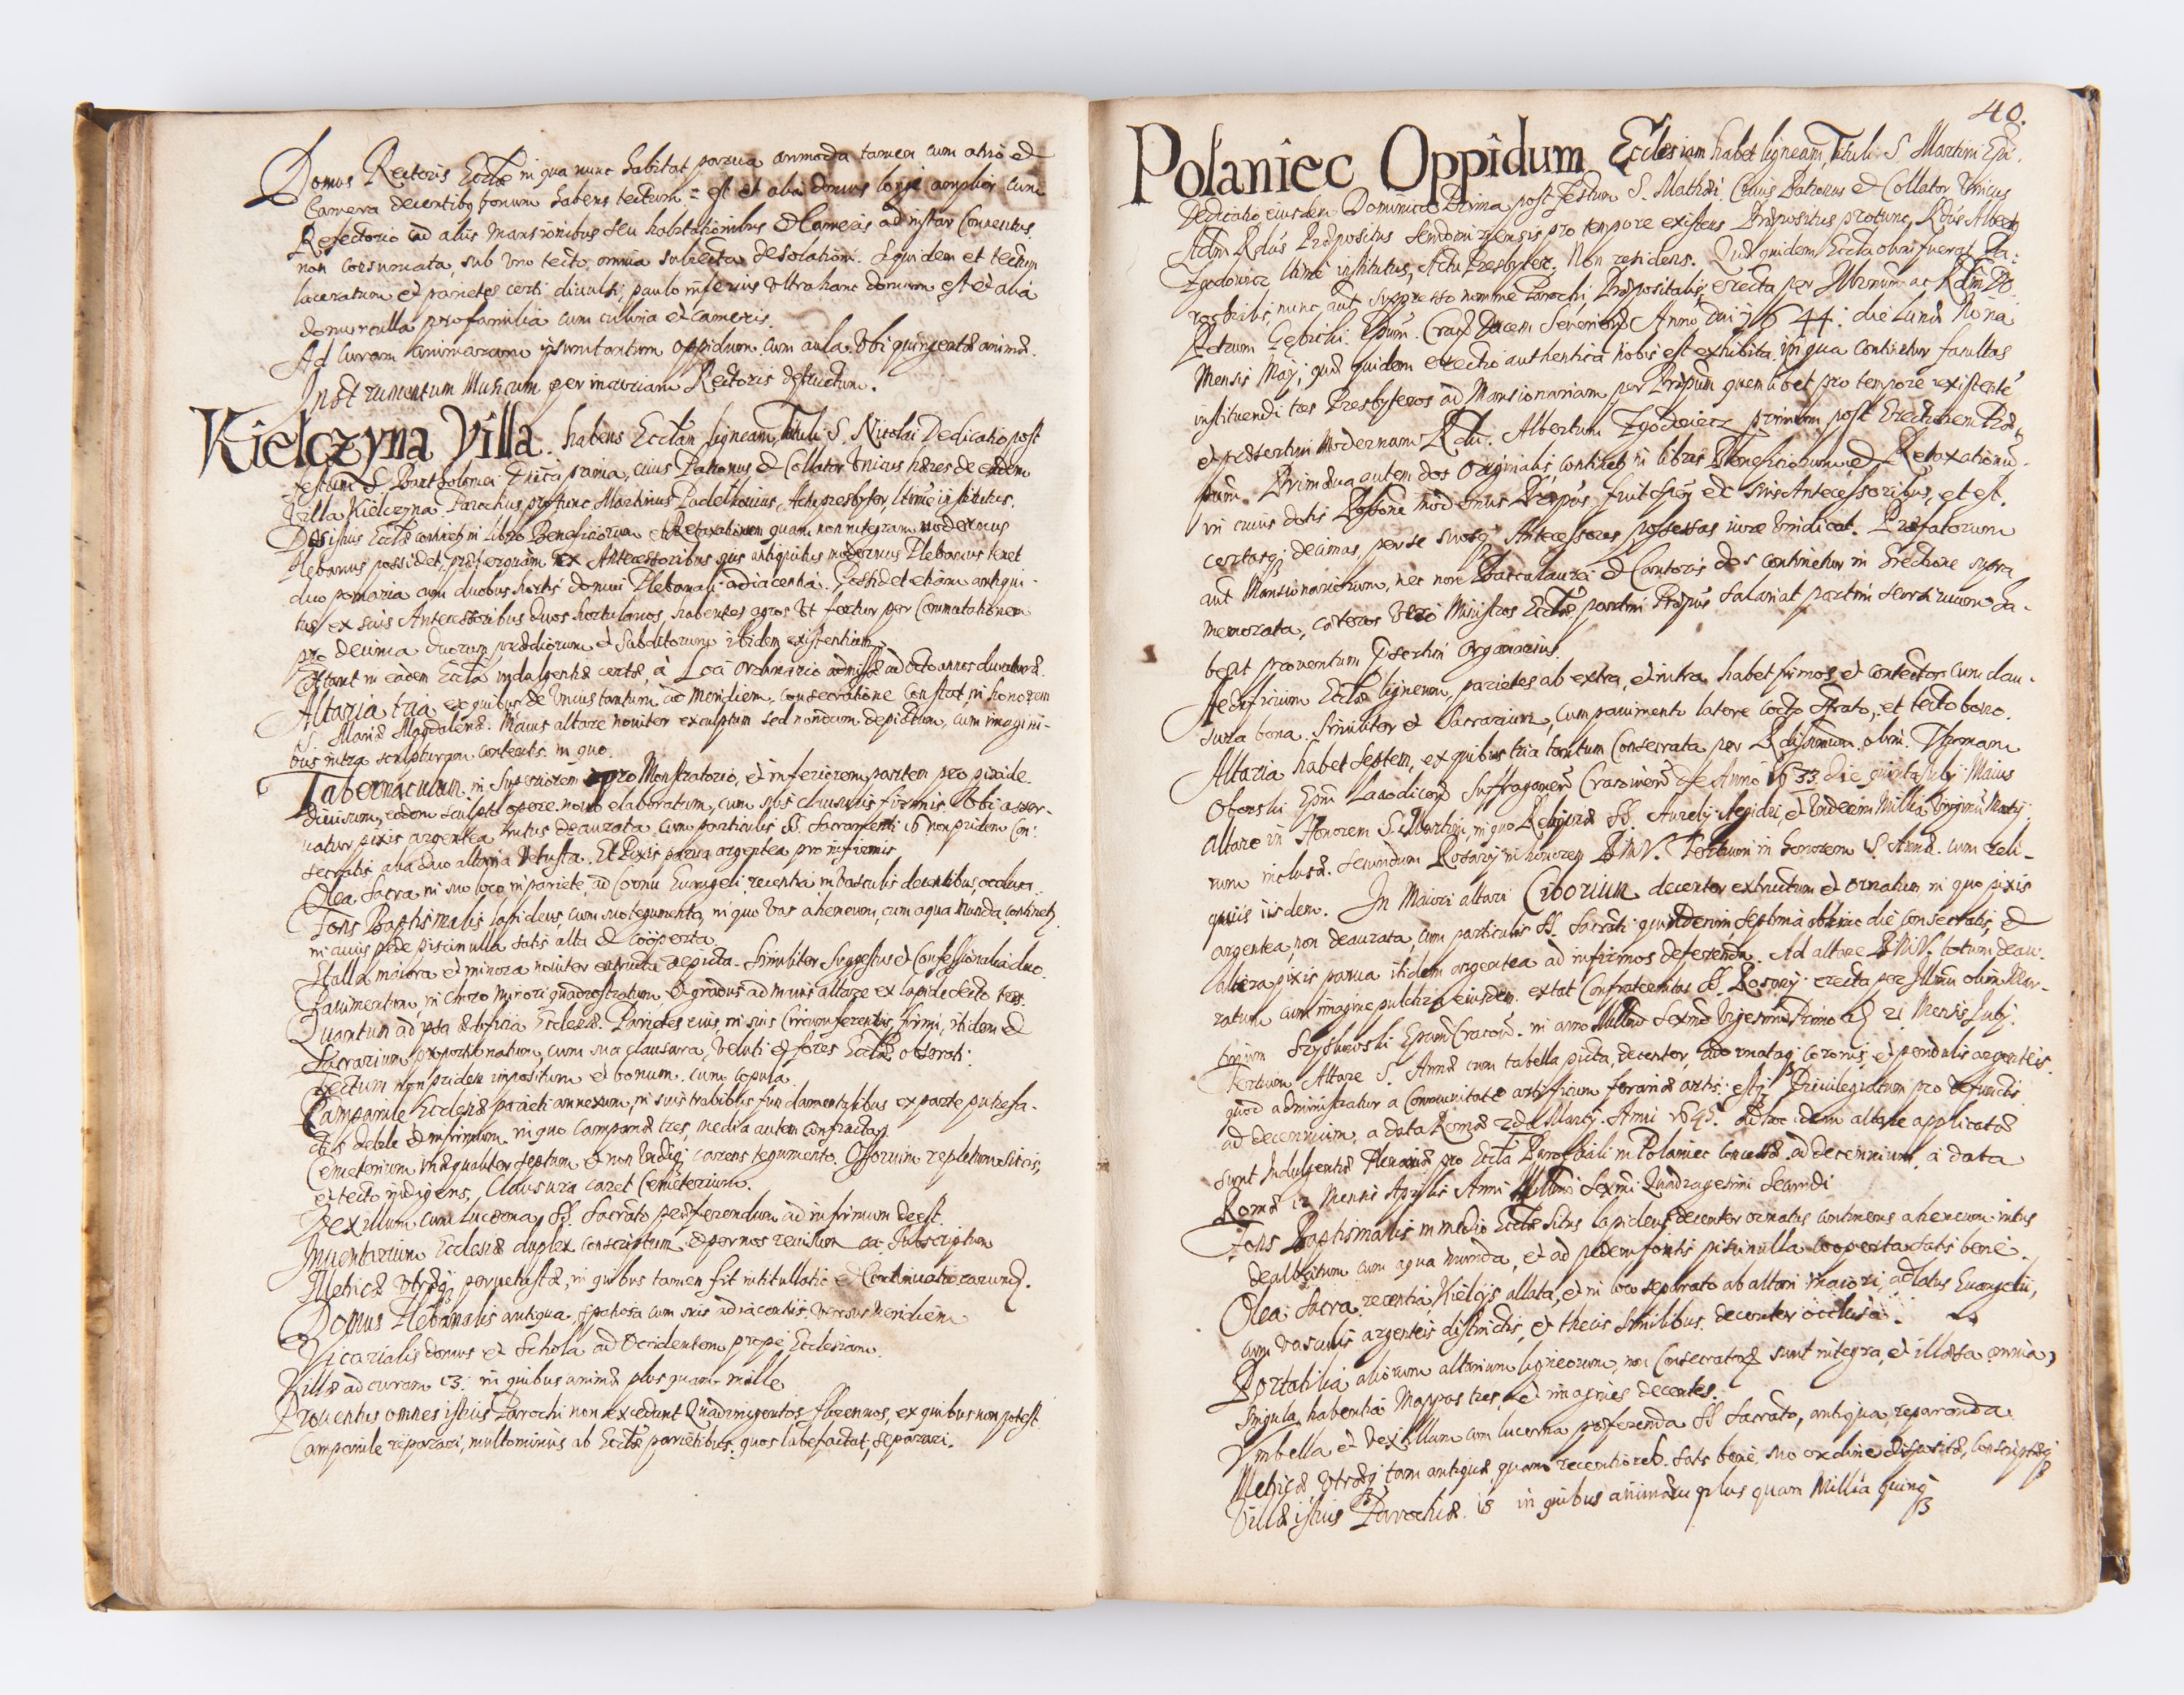 Domus Rectoris Ecctæ in qua nunc habitat parua commoda tamen cum atrio et
Camera decentibq bonum habens tectum = est et alia domus longe amplior cum
Refectorio ad aliis mansionibus seu habitationibus et Cameris ad instar Conuentus
non consumata, sub vno tecto omnia subiecta desolationi. Siquidem et tectum
laceratum et parietes certi diuulsi, paulo inferius vltra hanc domum est et alia
domuncula pro familia cum culina et cameris.
Ad curam animarum ipsum tantum oppidum cum aula. Vbi quingentæ animæ.
Instrumentum Musicum per incuriam Rectoris destructum.
Kielczyna Villa. habens Ecctam ligneam, Tituli S. Nicolai Dedicatio post
festum S. Bartholomei cuius Patronus et Collator Vnicus hæres de eadem
Villa Kielczyna. Parochus pro tunc Martinus Actu presbyter, ltime institutus.
Dos istius Ecctæ continetq in libro Beneficiorum et Retaxationum quam non integram modernus
Plebanus possidet, præterquam ex Antecessoribus quis antiquitus modernus Plebanus tenet
duo pomaria cum duobus hortis domui Plebanali adiacentia. Possidet etiam antiqui-
tus ex suis Antecessoribus duos hortulanos, habentes agros vt fertur per Commutationem
pro decima duorum prædiorum et Subditorum ibidem existentium.
Constant in eadem Eccta indulgentiæ certæ, à Loci Ordinario admissæ ad octo annos duraturæ.
Altaria tria ex quibus de vnius tantum ad meridiem, consecratione constat, in honorem
S. Mariæ Magdalenæ. Maius altare nouiter exculptum sed nondum depictum, cum imagini-
bus intra sculpturam contentis in quo
Tabernaculum in superiorem pro Monstratorio, et inferiorem partem pro pixide
diuisum, eodem sculpto opere nouo elaboratum, cum suis clausuris firmis Vbi asser-
uatur pixis argentea intus deaurata cum particulis SS. Sacramenti 16 non pridem con-
secratis, alia duo altaria vetusta. Et Pixis parua argentea pro infirmis
Olea Sacra in suo loco, in pariete, ad Cornu Euangelii recentia in vasculis decentibus, occlusa.
Fons Baptismalis lapideus, cum suo tegumento, in quo vas aheneum, cum aqua munda continetq
in cuius pede piscinulla satis alta et cooperta.
Stalla maiora et minora nouiter extructa depicta. Similiter Suggestus et Confessionalia duo.
Pauimentum, in choro minori quadrostratum et gradus ad maius altare ex lapide secto tres.
Quantum ad ipsa ædificia Ecclesiæ. Parietes eius, in suis circumferentiis, firmi, itidem et
Sacrarium proportionatum, cum sua clausura, veluti et fores Ecctæ obserati.
Tectum non pridem impositum et bonum. cum copula.
Campanile Ecclesiæ parieti annexum, in suis trabibus fundamentalibus ex parte putrefa-
ctis debile et infirmum in quo campanæ tres, media autem confracta.
Cemeterium inæqualiter septum, et non vndiq carens tegumento. Ossorium repletum
et tecto indigens, Clausura caret Cemeterium.
Vexillum cum lucerna SS. Sacrato præferendum ad infirmum deest.
Inuentarium Ecclesiæ duplex conscriptum et per nos reuisum ac subscriptum
Metricæ vtræq peruetustæ, in quibus tamen fit intitullatio et Continuatio earund.
Domus Plebanalis antiqua, spatiosa cum suis adiacentiis versus Meridiem
Vicarialis domus et Schola ad Occidentem prope Ecclesiam.
Villæ ad curam 13: in quibus animæ plus quam mille
Prouentus omnes istius Parochi non excedunt Quadringentos florenos, ex quibus non potest
Campanile reparari, multominus ab Ecctæ parietibus quos labefactat, separari.
40.
Polaniec Oppidum Ecclesiam habet ligneam, Tituli S. Martini Epi.
Dedicatio eiusdem Dominica Prima post Festum S. Mathæi. Cuius Patronus et Collator Vnicus
Adm Rdus Præpositus Sendomiriensis pro tempore existens Præpositus protunc, Rdus Albertq
Zgodowicz ltime institutus, Actu Presbyter. Non residens. Quæ quidem Eccta olim fuerat Pa-
rochialis, nunc aut suppresso nomine Parochi, Præpositalis, erecta per Illrmum ac Rdm Dd.
Petrum Gębicki Epum Crac. Ducem Severien. Anno Dni 1644: die Lunæ Nona
Mensis Maij, quæ quidem erectio authentica nobis est exhibita in qua continetur facultas
instituendi tres Presbyteros ad Mansionariam per Præpum quemlibet pro tempore existente
et præsertim Modernum Rdu. Albertum Zgodowicz primum post Erectionem Præ-
pum. Primæua autem dos Originalis continetq in libris Beneficiorum et Retaxationu.
in cuius dotis Psione mod ernus Præpus fuit et suis Antecessoribus, et est.
certasq decimas, per se suosq Antecessores possessas iure vindicat. Præfatorum
aut Mansionariorum, nec non Baccalaurei et Cantoris dos continetur in Erectione supra
memorata, cæteros vero Ministros Ecctæ partim Præpus salariat partim seorsiuum ha-
bent prouentum præsertim Organarius.
Aedificium Ecctæ ligneum, parietes ab extra, et intra habet firmos, et contectos cum clau-
sura bona. Similiter et Sacrarium, cum pauimento latere cocto strato, et tecto bono.
Altaria habet septem, ex quibus tria tantum Consecrata per Rdissimum olim Thomam
Oborski Epm Laodicen Suffraganeu Cracouien de Anno 1633 die quinta Julij. Maius
altare in Honorem S. Martini, in quo Reliquiæ SS. Aurelij Aegidii, et Vndecim Millia Virginu Martij
rum inclusæ. Secundum Rosarij in honorem BMV. Tertium in honorem S. Annæ. cum reli-
quiis iisdem. In Maiori altari Ciborium decenter extructum et ornatum in quo pixis
argentea, non deaurata, cum particulis SS. Sacrati quindecim septima obhinc die consecratis, et
altera pixis parua itidem argentea ad infirmos deferenda. Ad altare BMV. totum deau-
ratum cum imagine pulchra eiusdem extat Confraternitas SS. Rosarij erecta per Illmu olim Mar-
tinum Szyszkowski Epum Cracov. in anno Millmo Sexmo Vigesimo Primo 21 Mensis Julij.
Tertium Altare S. Annæ cum tabella picta, decenter, adornataq coronis, et pendulis argenteis.
quod administratur a Communitate artificum ferariæ artis: estq Priuilegiatum pro defunctis
ad decennium, a data Romæ 2da Martij Anni 1645. Ad hoc idem altare applicatæ
sunt Indulgentiæ Plenariæ pro Eccta Parochiali in Polaniec concessæ ad decennium, a data
Romæ 12 Mensis Aprilis Anni Millmi Sexmi Quadragesimi Secundi
Fons Baptismalis in medio Ecctæ situs lapideus, decenter ornatus continens aheneum intus
dealbatum cum aqua munda, et ad pedem fontis piscinulla cooperta satis bene.
Olea Sacra recentia Kielcijs allata, et in loco separato ab altari maiori, ad latus Euangelii,
cum vasculis argenteis distinctis, et thecis similibus decenter occlusa.
Portatilia aliorum altarium ligneorum, non consecratorum sunt integra, et illæsa omnia,
singula, habentia Mappas tres et imagines decentes.
Vmbella et Vexillum cum lucerna præferenda SS Sacrato, antiqua, reparanda.
Metricæ vtræq tam antiquæ quam recentiores. satis bene, suo ordine dispositæ, conscriptæq
Villæ istius Parochiæ 13 in quibus animaru plus quam Millia quinq